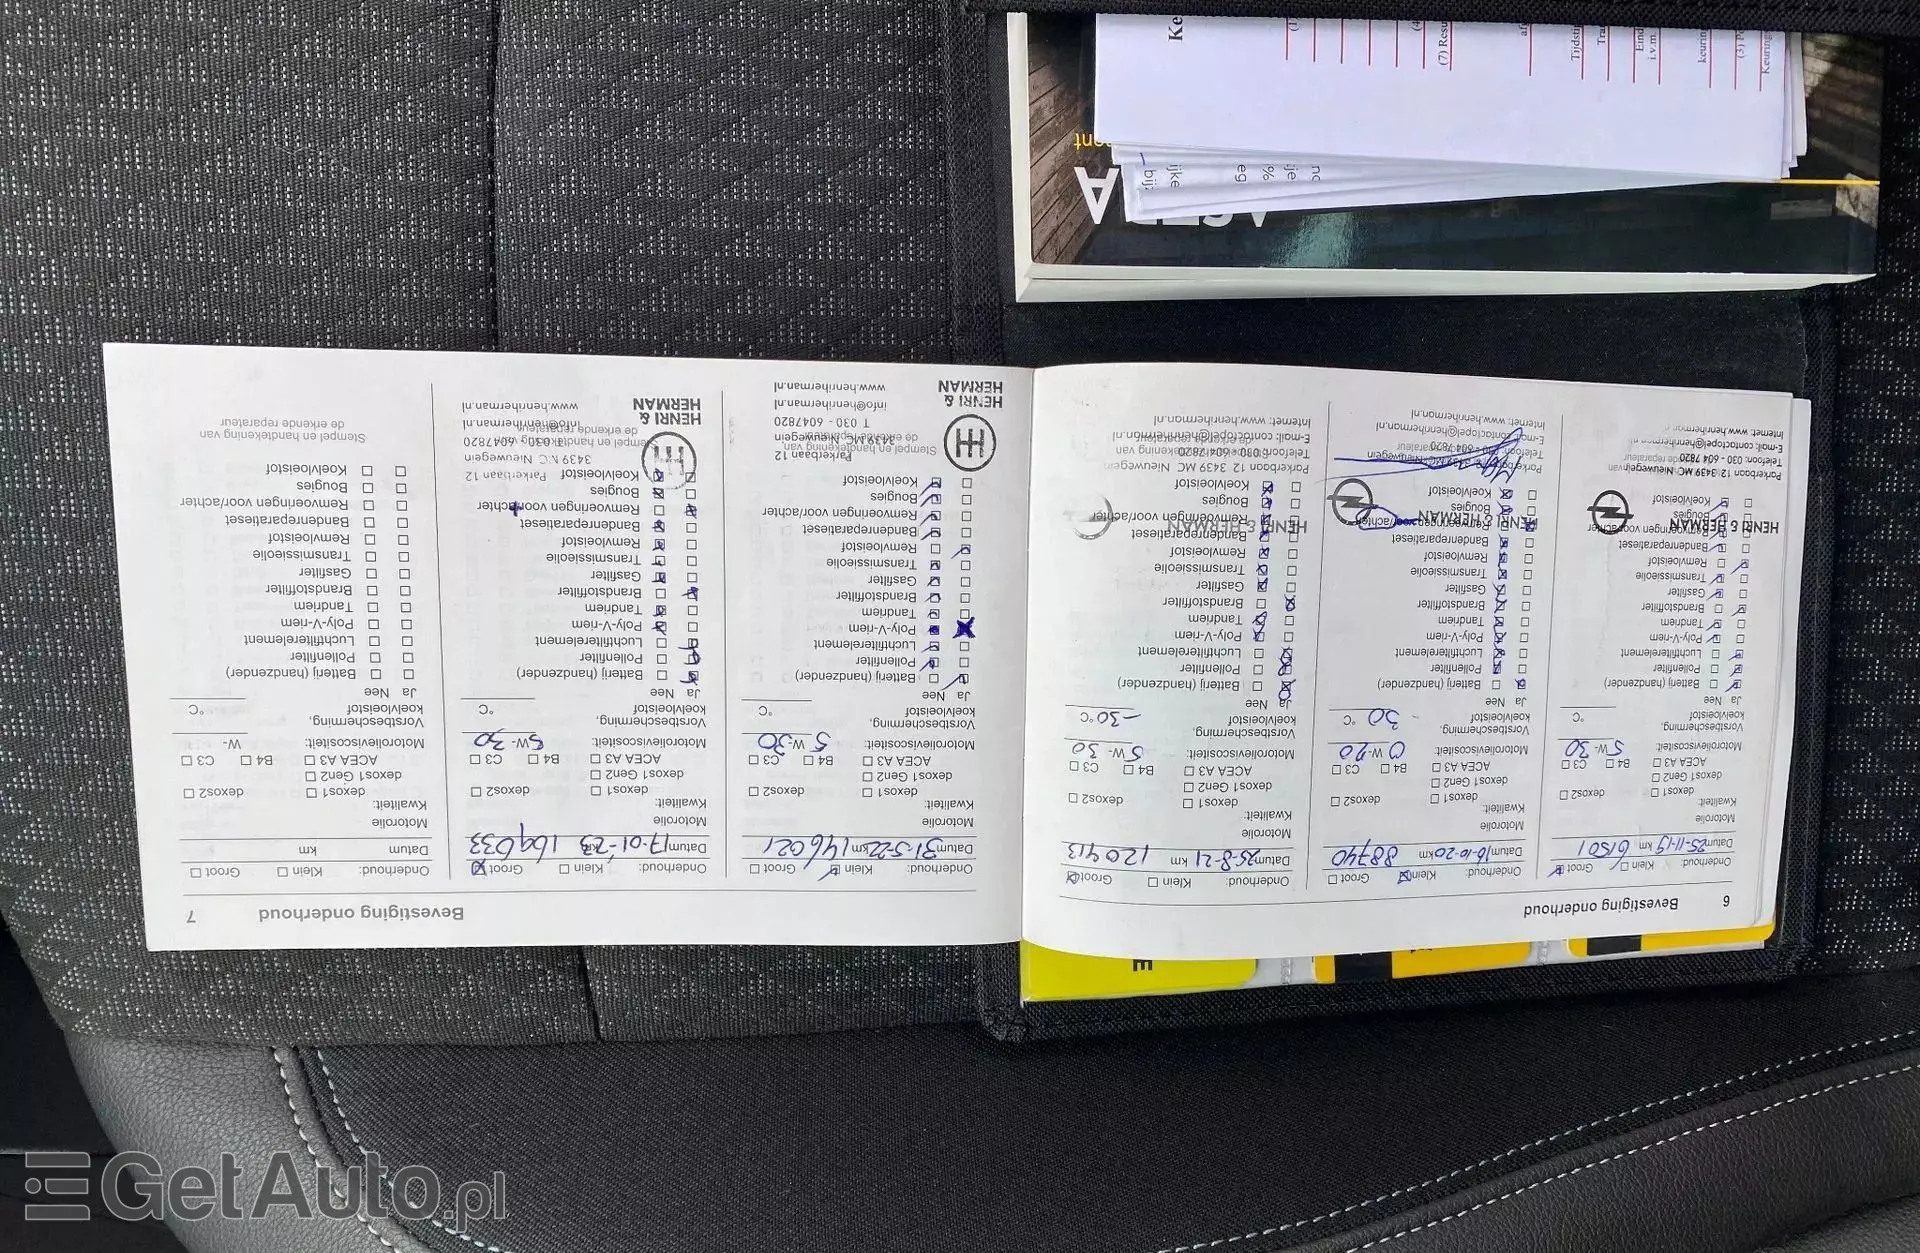 6 Bevestiging onderhoud
Onderhoud: Klein Groot
Datum 25-11-19 km 61501
Motorolie
Kwaliteit:
dexos1 dexos2
dexos1 Gen2
ACEA A3 B4 C3
Motorolieviscositeit: 5 W- 30
Vorstbescherming,
koelvloeistof °C
Ja Nee
Batterij (handzender)
Pollenfilter
Luchtfilterelement
Poly-V-riem
Tandriem
Brandstoffilter
Gasfilter
Transmissieolie
Remvloeistof
Bandenreparatieset
Remvoeringen voor/achter
Bougies
Koelvloeistof
HENRI & HERMAN
Parkerbaan 12 3439 MC Nieuwegein
Telefoon: 030 - 604 7820
E-mail: contactopel@henriherman.nl
Internet: www.henriherman.nl
Onderhoud: Klein Groot
Datum 16-10-20 km 88740
Motorolie
Kwaliteit:
dexos1 dexos2
dexos1 Gen2
ACEA A3 B4 C3
Motorolieviscositeit: 0 W-20
Vorstbescherming,
koelvloeistof - 30 °C
Ja Nee
Batterij (handzender)
Pollenfilter
Luchtfilterelement
Poly-V-riem
Tandriem
Brandstoffilter
Gasfilter
Transmissieolie
Remvloeistof
Bandenreparatieset
Remvoeringen voor/achter
Bougies
Koelvloeistof
HENRI & HERMAN
E-mail: contactopel@henriherman.nl
Internet: www.henriherman.nl
Onderhoud: Klein Groot
Datum 25-8-21 km 120413
Motorolie
Kwaliteit:
dexos1 dexos2
dexos1 Gen2
ACEA A3 B4 C3
Motorolieviscositeit: 5 W- 30
Vorstbescherming,
koelvloeistof -30 °C
Ja Nee
Batterij (handzender)
Pollenfilter
Luchtfilterelement
Poly-V-riem
Tandriem
Brandstoffilter
Gasfilter
Transmissieolie
Remvloeistof
Bandenreparatieset
Remvoeringen voor/achter
Bougies
Koelvloeistof
HENRI & HERMAN
Parkerbaan 12 3439 MC Nieuwegein
Telefoon: 030 - 604 7820
E-mail: contactopel@henriherman.nl
Internet: www.henriherman.nl
Bevestiging onderhoud 7
Onderhoud: Klein Groot
Datum 31-5-22 km 146021
Motorolie
Kwaliteit:
dexos1 dexos2
dexos1 Gen2
ACEA A3 B4 C3
Motorolieviscositeit: 5 W-30
Vorstbescherming,
koelvloeistof °C
Ja Nee
Batterij (handzender)
Pollenfilter
Luchtfilterelement
Poly-V-riem
Tandriem
Brandstoffilter
Gasfilter
Transmissieolie
Remvloeistof
Bandenreparatieset
Remvoeringen voor/achter
Bougies
Koelvloeistof
Stempel en handtekening van
de erkende reparateur
HENRI &
HERMAN
Parkerbaan 12
3439 MC Nieuwegein
T 030 - 6047820
info@henriherman.nl
www.henriherman.nl
Onderhoud: Klein Groot
Datum 17-01-23 km 169033
Motorolie
Kwaliteit:
dexos1 dexos2
dexos1 Gen2
ACEA A3 B4 C3
Motorolieviscositeit: 5 W- 30
Vorstbescherming,
koelvloeistof °C
Ja Nee
Batterij (handzender)
Pollenfilter
Luchtfilterelement
Poly-V-riem
Tandriem
Brandstoffilter
Gasfilter
Transmissieolie
Remvloeistof
Bandenreparatieset
Remvoeringen voor/achter
Bougies
Koelvloeistof
Stempel en handtekening van
de erkende reparateur
HENRI &
HERMAN
Parkerbaan 12
3439 MC Nieuwegein
T 030 - 6047820
info@henriherman.nl
www.henriherman.nl
Onderhoud: Klein Groot
Datum km
Motorolie
Kwaliteit:
dexos1 dexos2
dexos1 Gen2
ACEA A3 B4 C3
Motorolieviscositeit: W-
Vorstbescherming,
koelvloeistof °C
Ja Nee
Batterij (handzender)
Pollenfilter
Luchtfilterelement
Poly-V-riem
Tandriem
Brandstoffilter
Gasfilter
Transmissieolie
Remvloeistof
Bandenreparatieset
Remvoeringen voor/achter
Bougies
Koelvloeistof
Stempel en handtekening van
de erkende reparateur
GetAuto.pl